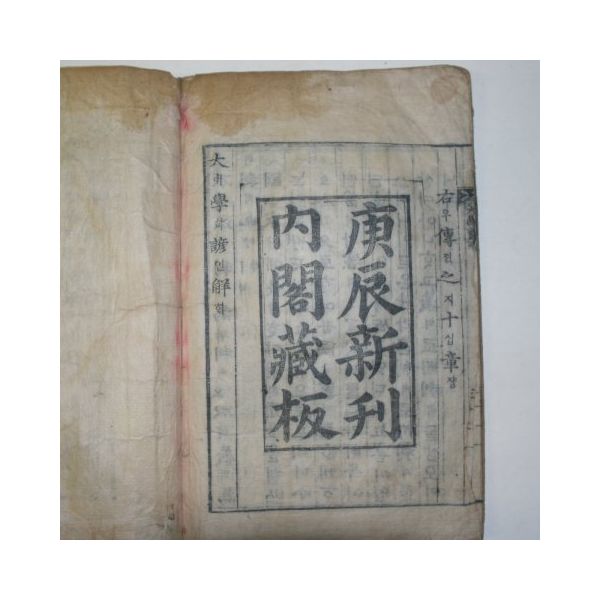 右우傳뎐之지十십章쟝
庚辰新刊
內閣藏板
大대學학諺언解ᄒᆡ